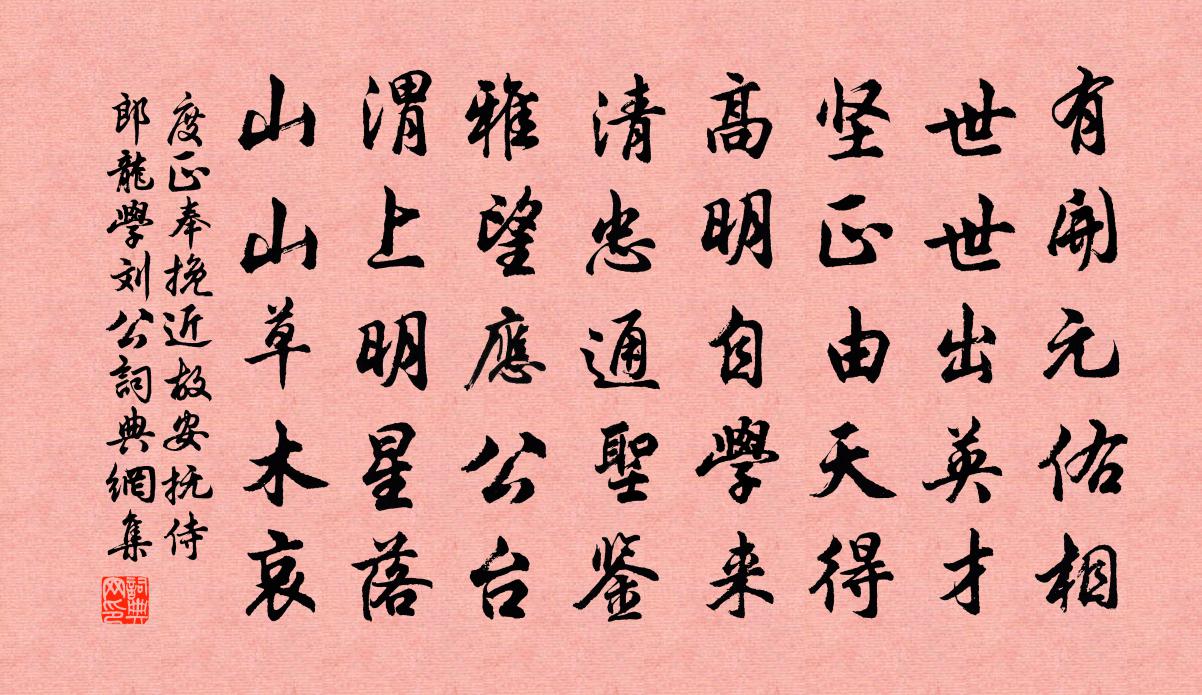 有開元佑相
世世出英才
坚正由天得
高明自學来
清忠通聖鉴
雅望應公台
渭上明星落
山山草木哀
度正奉挽近故安抚侍
郎龍學刘公詞典網集
詞典
网印